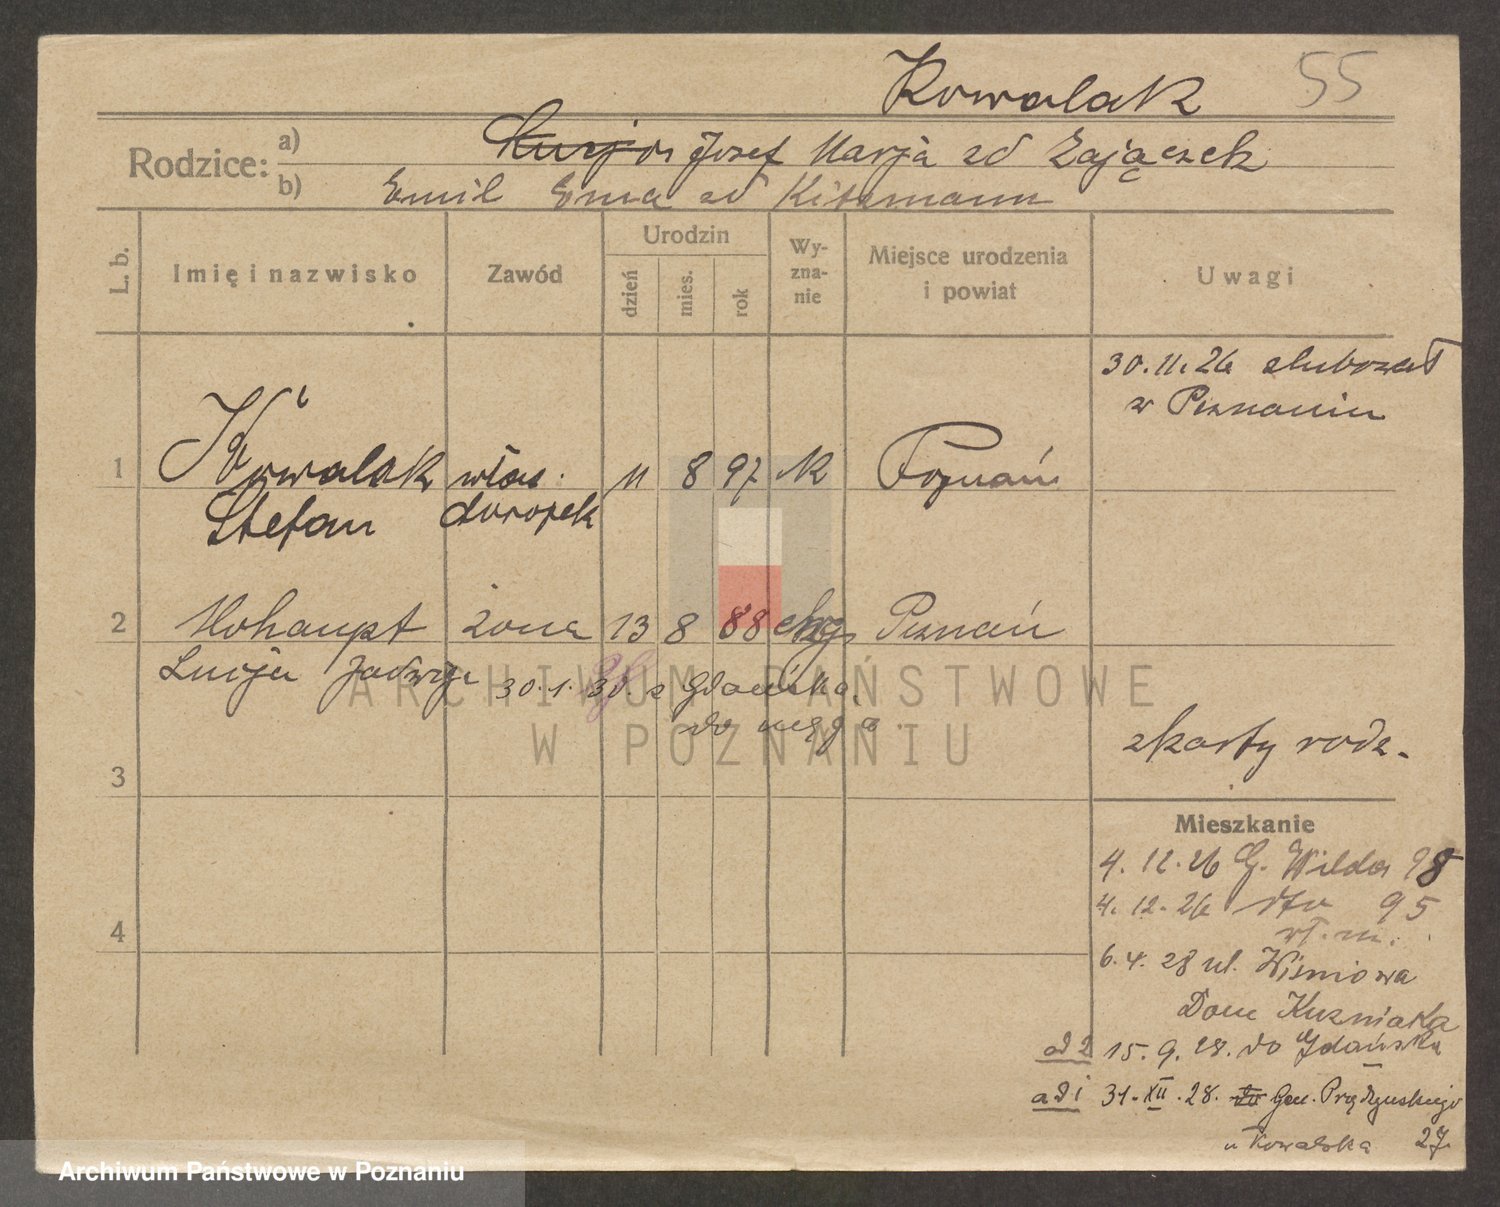 Kowalak 55
Rodzice:
a) Józef Marja zd Zajączek
b) Emil Ema zd Kitzmann
L. b. Imię i nazwisko Zawód Urodzin dzień mies. rok Wyznanie Miejsce urodzenia i powiat Uwagi
30.11.26 slubował
w Poznaniu
1 Kowalak włas. 11 8 97 K Poznań
Stefan dorożek
2 Hohaupt żona 13 8 88 Poznań
Lucja Jadwiga 30.1. z Gdańska
do męża
zkarty rodz.
3
4
Mieszkanie
4. 12. 26 G. Wilda 98
4. 12. 26 dto 95
wł. m.
6. 4. 28 ul. Wiśniowa
Dom Kuzniaka
ad 2 15. 9. 28. do Gdańska
ad 1 31. XII. 28. Gen. Prądzyńskiego
u Kowalska 27.
ARCHIWUM PAŃSTWOWE
W POZNANIU
Archiwum Państwowe w Poznaniu